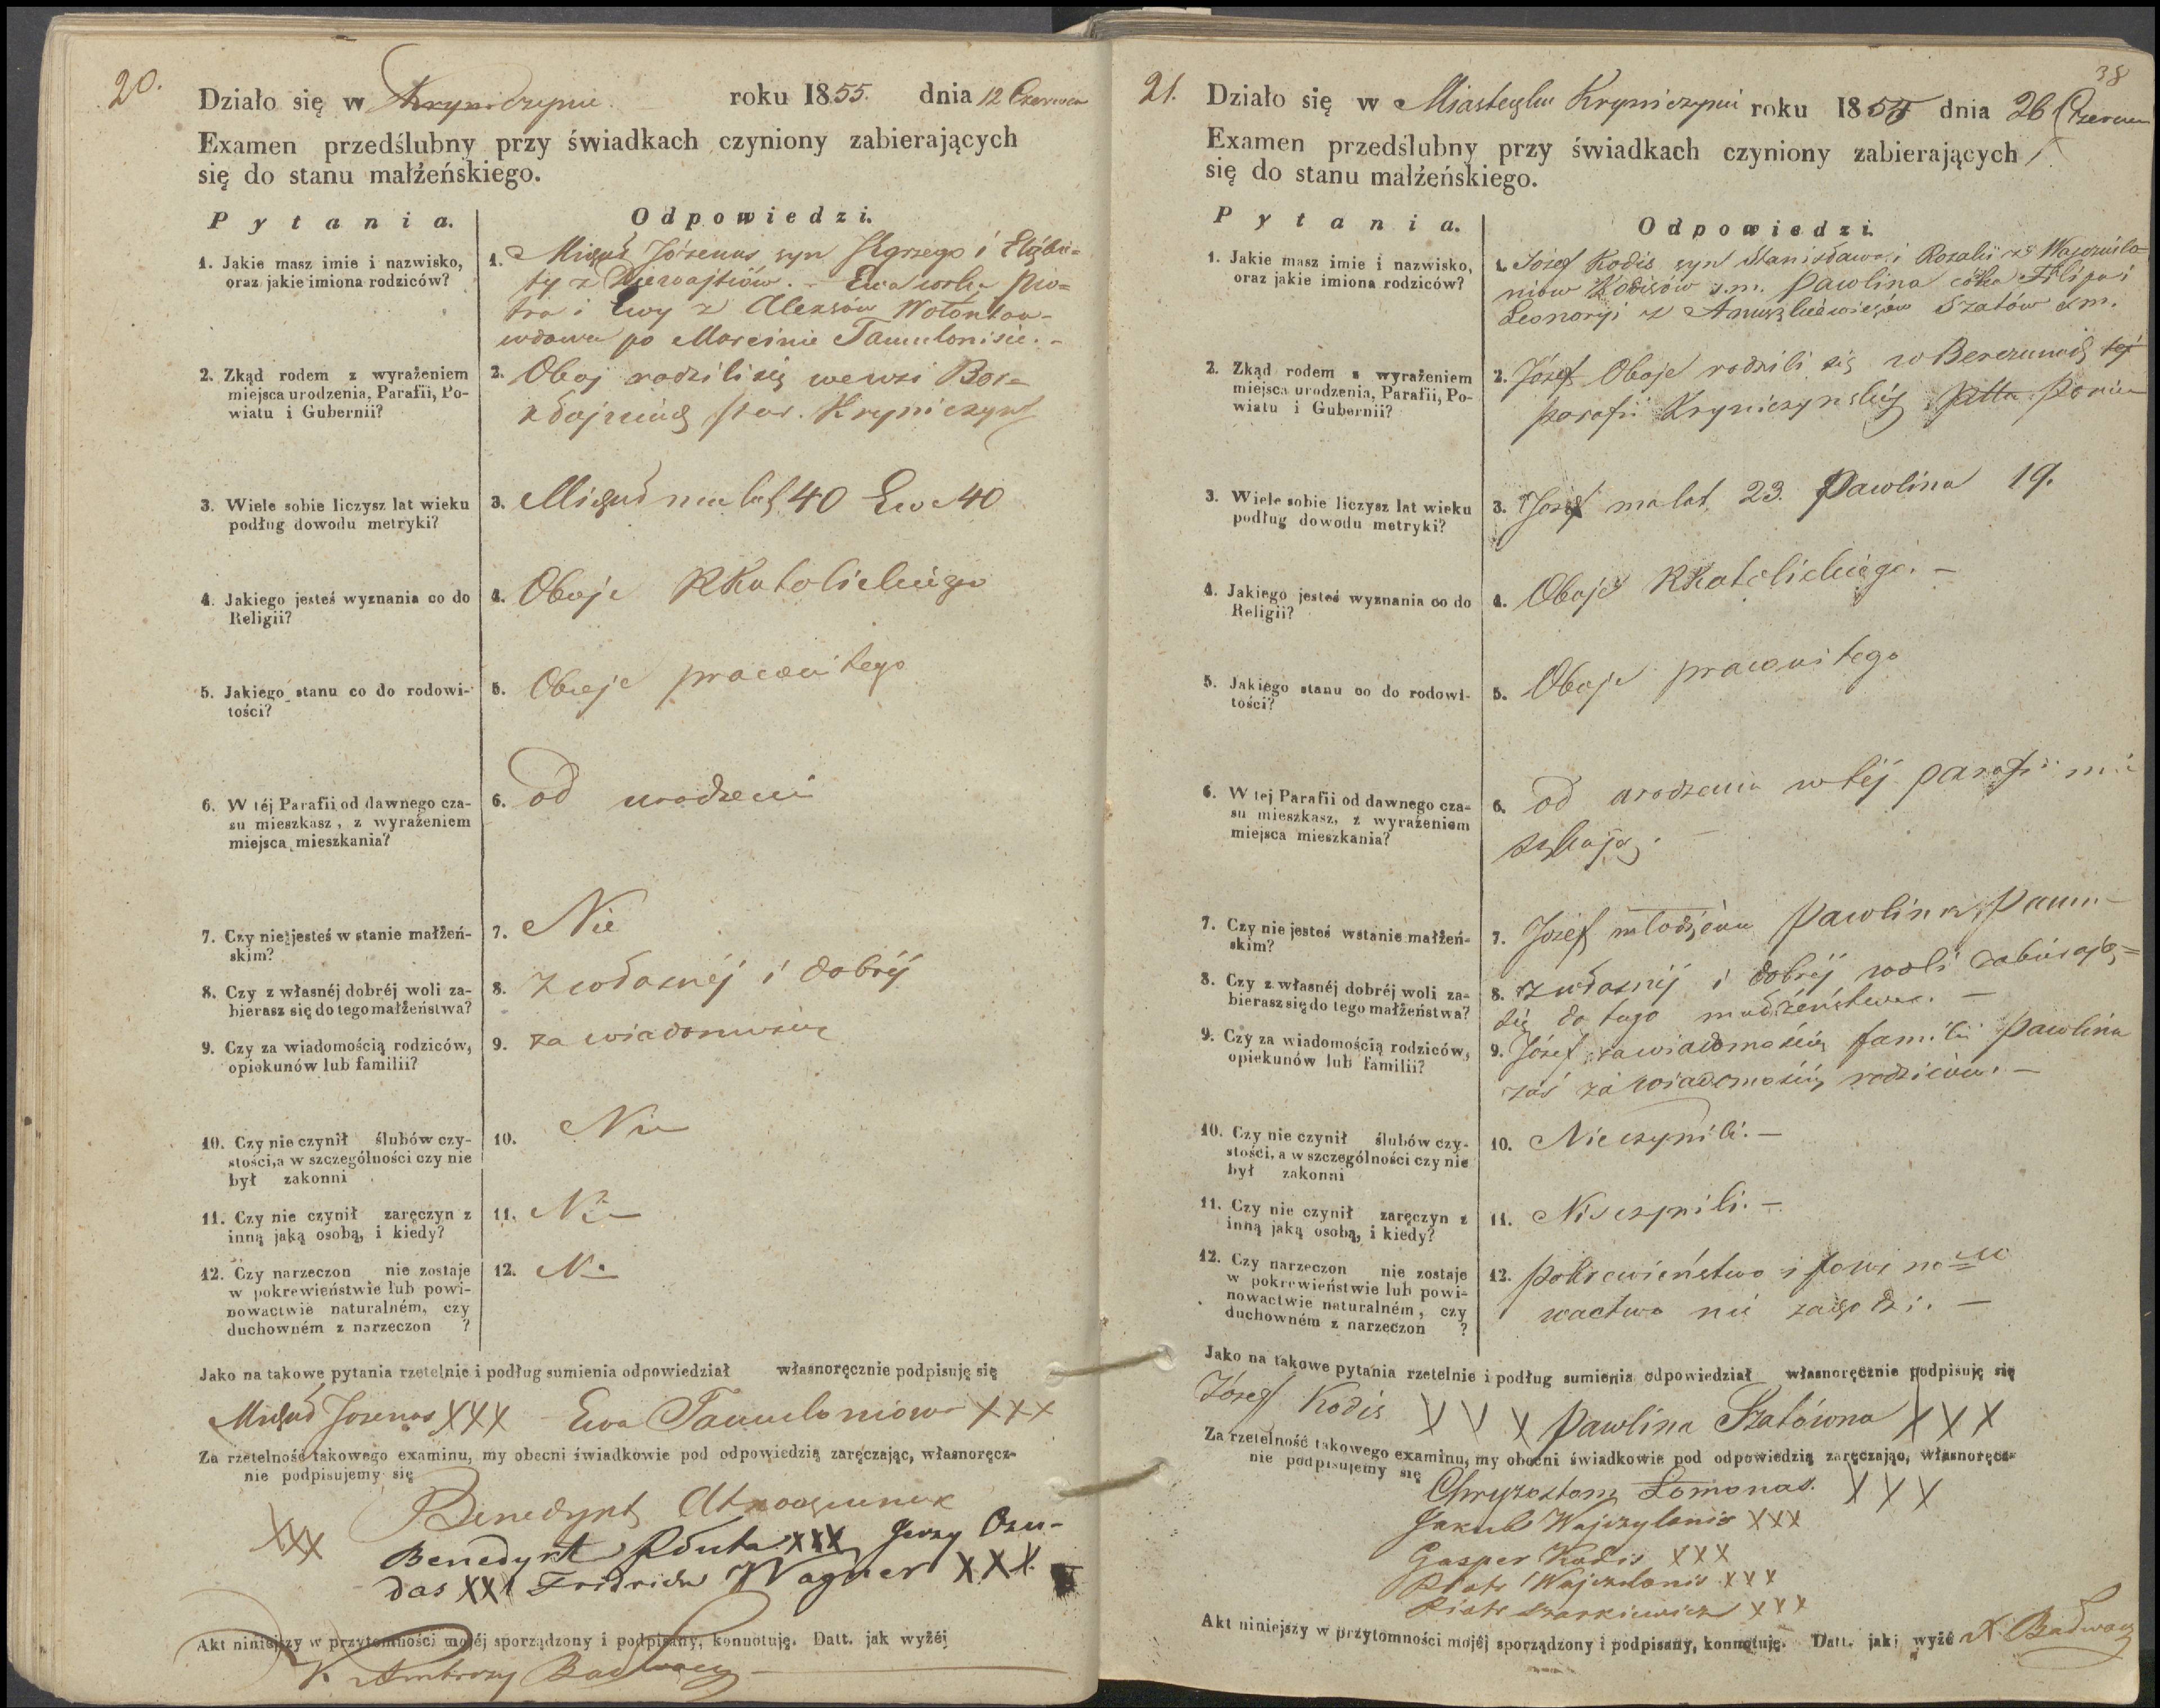 20.
Działo się w Kryniczynie roku 1855. dnia 12 Czerwca
Examen przedślubny przy świadkach czyniony zabierających
się do stanu małżeńskiego.
Pytania. Odpowiedzi.
1. Jakie masz imie i nazwisko,
oraz jakie imiona rodziców?
1. syn Jerzego i Elżbie=
ty z Ewa corka Pio=
tra i Ewy z Alexsów
wdowa po Marcinie Tamulonisie. -
2. Zkąd rodem z wyrażeniem
miejsca urodzenia, Parafii, Po-
wiatu i Gubernii?
2. Oboj rodzili się we wsi
par. Kryniczyn
3. Wiele sobie liczysz lat wieku
podług dowodu metryki?
3. ma lat 40 Ewa 40
4. Jakiego jesteś wyznania co do
Religii?
4. Oboje RKatolickiego
5. Jakiego stanu co do rodowi-
tości?
5. Oboje pracowitego
6. W téj Parafii od dawnego cza-
su mieszkasz, z wyrażeniem
miejsca mieszkania?
6. od urodzeni
7. Czy nie jesteś w stanie małżeń-
skim?
7. Nie
8. Czy z własnéj dobréj woli za-
bierasz się do tego małżeństwa?
8. z własnéj i dobréj
9. Czy za wiadomością rodziców,
opiekunów lub familii?
9. za wiadomością
10. Czy nie czynił ślubów czy-
stości, a w szczególności czy nie
był zakonni
10. Nie
11. Czy nie czynił zaręczyn z
inną jaką osobą, i kiedy?
11. Nie
12. Czy narzeczon nie zostaje
w pokrewieństwie lub powi-
nowactwie naturalném, czy
duchowném z narzeczon ?
12. Nie
Jako na takowe pytania rzetelnie i podług sumienia odpowiedział własnoręcznie podpisuję się
XXX Ewa Tamuloniowa XXX
Za rzetelność takowego examinu, my obecni świadkowie pod odpowiedzią zaręczając, własnoręcz-
nie podpisujemy się
XXX Benedykt
Benedykt XXX Jerzy Ozu-
das XXX Fridrich Wagner XXX
Akt niniejszy w przytomności mojéj sporządzony i podpisany, konnotuję. Datt. jak wyżéj
X. Ambrozy
38
21.
Działo się w Miasteczku Krynniczynie roku 1855 dnia 26 Czerwca
Examen przedślubny przy świadkach czyniony zabierających
się do stanu małżeńskiego.
Pytania. Odpowiedzi.
1. Jakie masz imie i nazwisko,
oraz jakie imiona rodziców?
1. Józef Kodis syn Stanisława i Rozalii z
niow Kodisów s.m. Pawlina córka Filipa i
Leonoryi z Szatów s.m.
2. Zkąd rodem z wyrażeniem
miejsca urodzenia, Parafii, Po-
wiatu i Gubernii?
2. Józef Oboje rodzili się w téj
parafii Krynniczynskiéj
3. Wiele sobie liczysz lat wieku
podług dowodu metryki?
3. Józef ma lat 23. Pawlina 19.
4. Jakiego jesteś wyznania co do
Religii?
4. Oboje RKatolickiego. -
5. Jakiego stanu co do rodowi-
tości?
5. Oboje pracowitego
6. W tej Parafii od dawnego cza-
su mieszkasz, z wyrażeniem
miejsca mieszkania?
6. od urodzenia w téj parafii mie
szkają. -
7. Czy nie jesteś w stanie małżeń-
skim?
7. Józef młodzian Pawlina Panna
8. Czy z własnéj dobréj woli za-
bierasz się do tego małżeństwa?
8. z własnéj i dobréj woli zabierają=
się do tego małżeństwa. -
9. Czy za wiadomością rodziców,
opiekunów lub familii?
9. Józef za wiadomością familii Pawlina
zaś za wiadomością rodziców. -
10. Czy nie czynił ślubów czy-
stości, a w szczególności czy nie
był zakonni
10. Nie czynili. -
11. Czy nie czynił zaręczyn z
inną jaką osobą, i kiedy?
11. Nie czynili. -
12. Czy narzeczon nie zostaje
w pokrewieństwie lub powi-
nowactwie naturalném, czy
duchowném z narzeczon ?
12. pokrewieństwo i powino
wactwo nie zachodzi. -
Jako na takowe pytania rzetelnie i podług sumienia odpowiedział własnoręcznie podpisuję się
Józef Kodis XXX Pawlina Szatówna XXX
Za rzetelność takowego examinu, my obecni świadkowie pod odpowiedzią zaręczając, własnoręcz-
nie podpisujemy się
Chryzostom Łomonas. XXX
Jakub Wajczylonis XXX
Gasper Kodis XXX
Piotr Wajczulonis XXX
Piotr XXX
Akt niniejszy w przytomności mojéj sporządzony i podpisany, konnotuję. Datt. jak wyżé X.